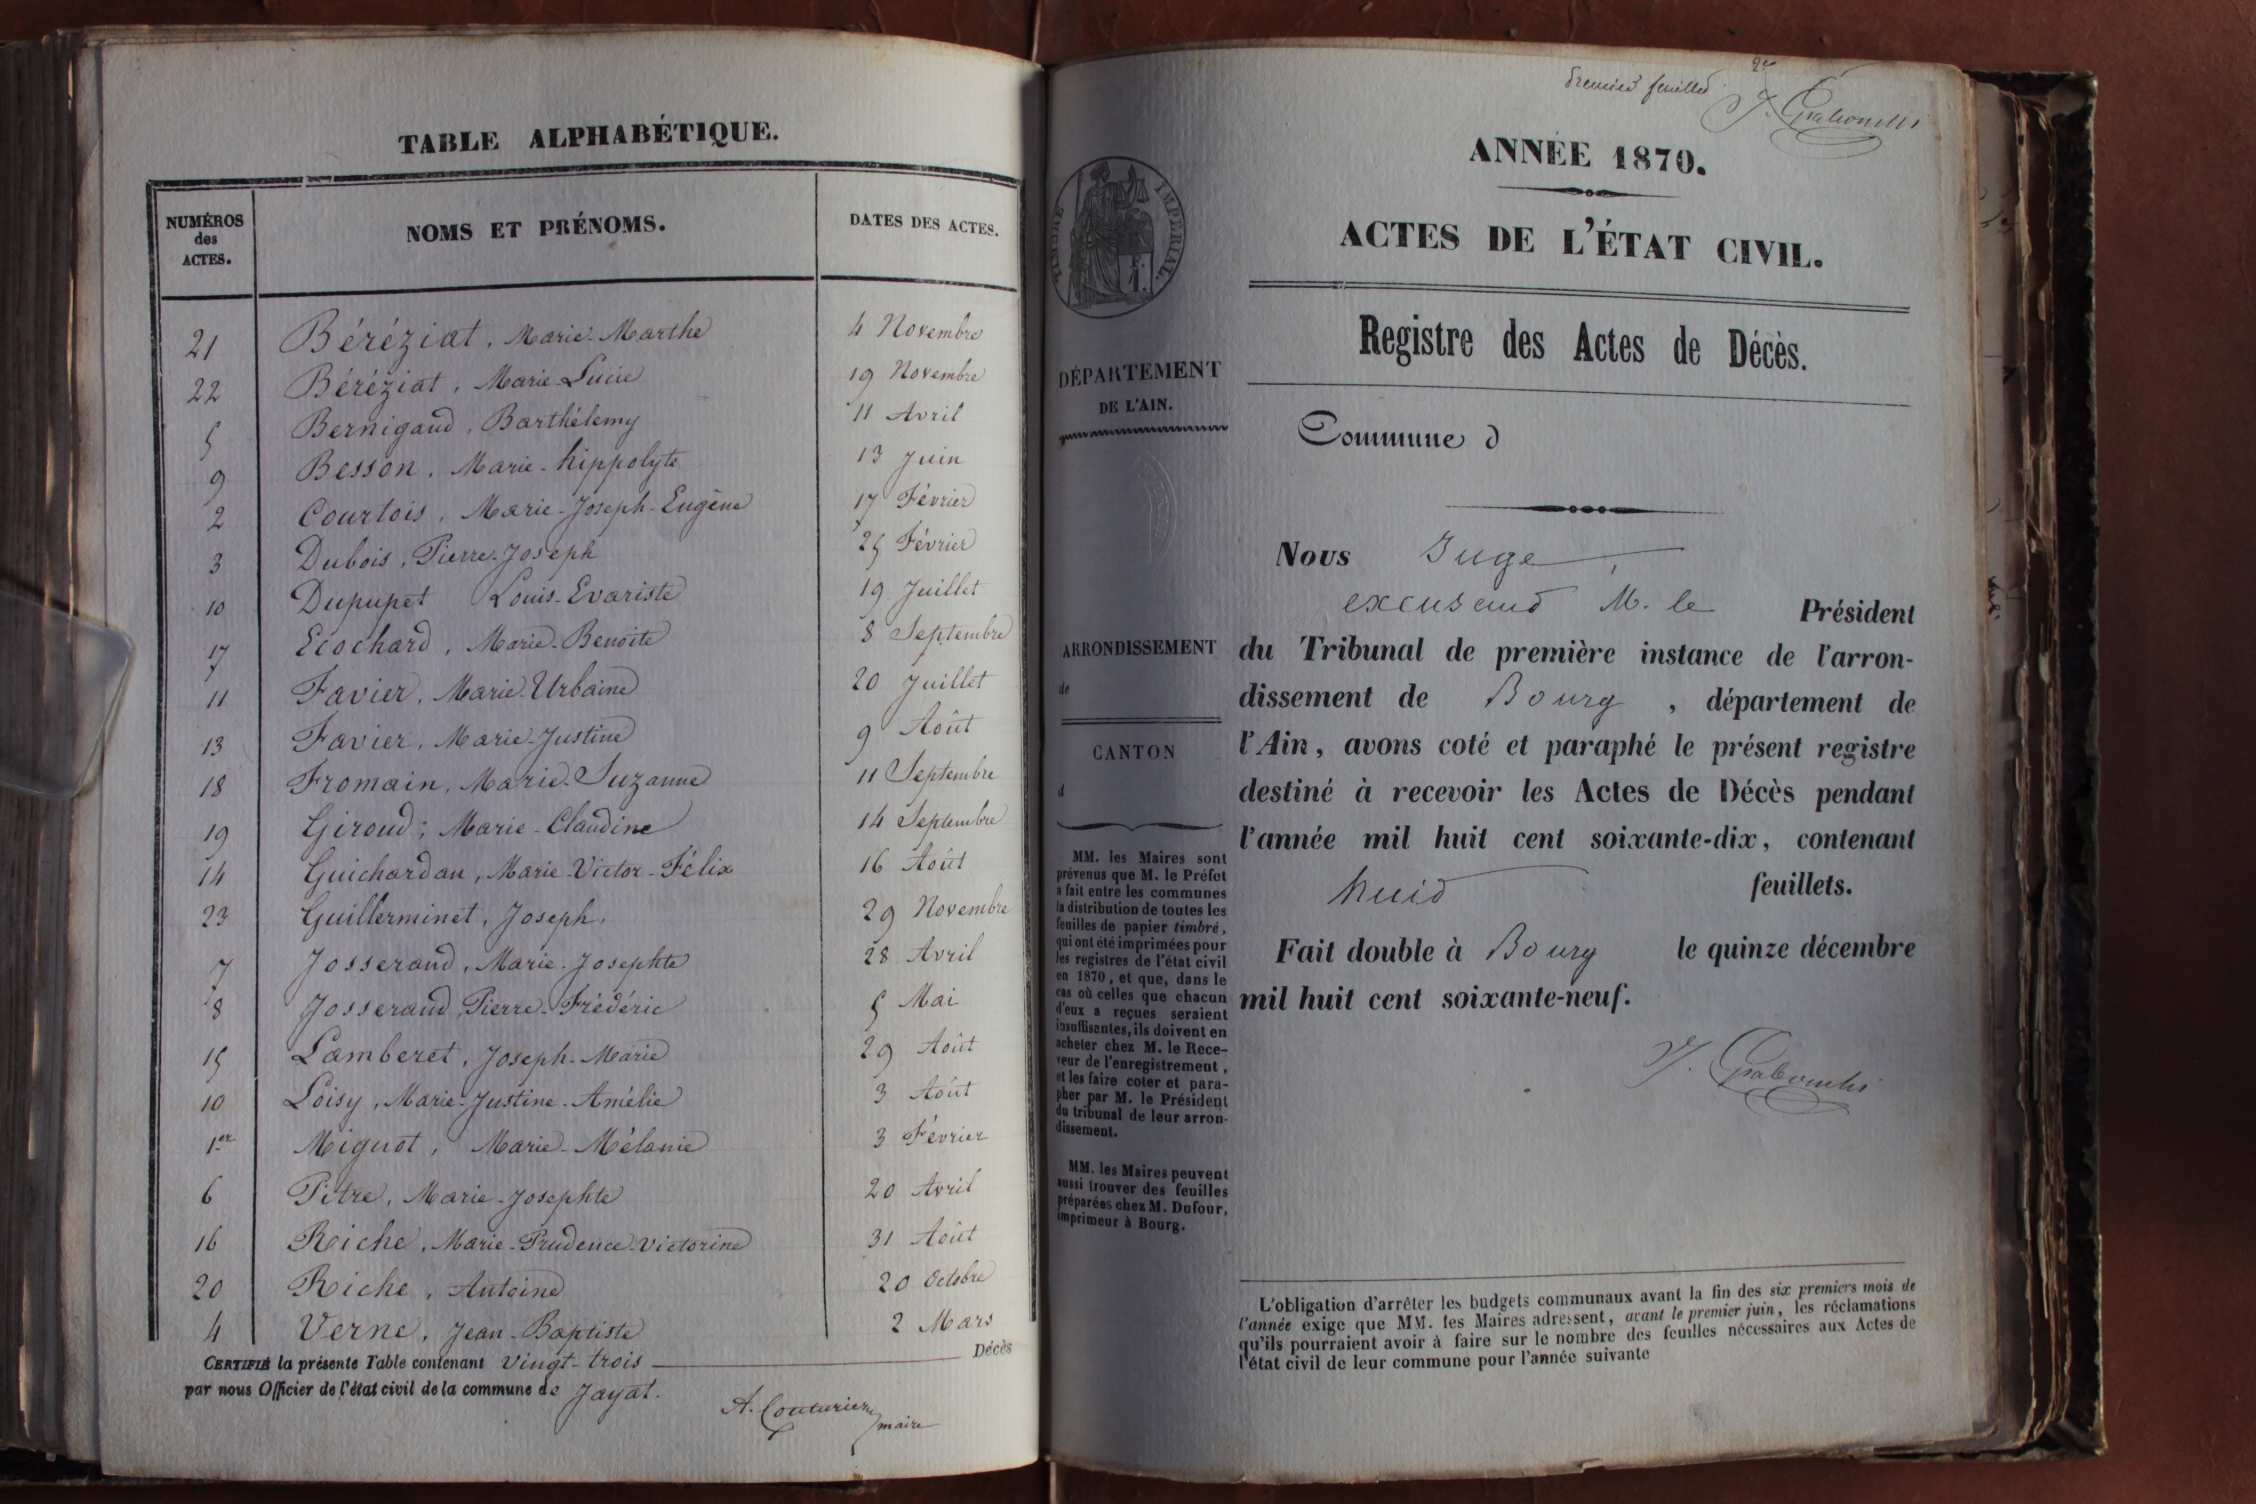 TABLE ALPHABÉTIQUE.
NUMÉROS des ACTES. NOMS ET PRÉNOMS. DATES DES ACTES.
21 Béréziat, Marie-Marthe 4 Novembre
22 Béréziat, Marie-Lucie 19 Novembre
5 Bernigaud, Barthélemy 11 Avril
9 Besson, Marie-hippolyte 13 Juin
2 Courtois, Marie-Joseph-Eugène 17 Février
3 Dubois, Pierre-Joseph 25 Février
10 Dupupet Louis-Evariste 19 Juillet
17 Ecochard, Marie-Benoite 8 Septembre
11 Favier, Marie-Urbaine 20 Juillet
13 Favier, Marie-Justine 9 Août
18 Fromain, Marie-Suzanne 11 Septembre
19 Giroud, Marie-Claudine 14 Septembre
14 Guichardan, Marie-Victor-Félix 16 Août
23 Guillerminet, Joseph. 29 Novembre
7 Josserand, Marie-Josephte 28 Avril
8 Josserand, Pierre-Frédéric 5 Mai
15 Lamberet, Joseph-Marie 29 Août
10 Loisy, Marie-Justine-Amélie 3 Août
1er Miguot, Marie-Mélanie 3 Février
6 Pitre, Marie-Josephte 20 Avril
16 Riche, Marie-Prudence-Victorine 31 Août
20 Riche, Antoine 20 Octobre
4 Verne, Jean-Baptiste 2 Mars
CERTIFIÉ la présente Table contenant vingt-trois Décès
par nous Officier de l'état civil de la commune de Jayat.
A. Couturier
maire
2e
premier feuillet
ANNÉE 1870.
ACTES DE L'ÉTAT CIVIL.
Registre des Actes de Décès.
Commune d
Nous Juge
excusand M. le Président
du Tribunal de première instance de l'arron-
dissement de Bourg, département de
l'Ain, avons coté et paraphé le présent registre
destiné à recevoir les Actes de Décès pendant
l'année mil huit cent soixante-dix, contenant
huit feuillets.
Fait double à Bourg le quinze décembre
mil huit cent soixante-neuf.
L'obligation d'arrêter les budgets communaux avant la fin des six premiers mois de
l'année exige que MM. les Maires adressent, avant le premier juin, les réclamations
qu'ils pourraient avoir à faire sur le nombre des feuilles nécessaires aux Actes de
l'état civil de leur commune pour l'année suivante
TIMBRE IMPÉRIAL.
DÉPARTEMENT
DE L'AIN.
ARRONDISSEMENT
de
CANTON
d
MM. les Maires sont
prévenus que M. le Préfet
a fait entre les communes
la distribution de toutes les
feuilles de papier timbré,
qui ont été imprimées pour
les registres de l'état civil
en 1870, et que, dans le
cas où celles que chacun
d'eux a reçues seraient
insuffisantes, ils doivent en
acheter chez M. le Rece-
veur de l'enregistrement,
et les faire coter et para-
pher par M. le Président
du tribunal de leur arron-
dissement.
MM. les Maires peuvent
aussi trouver des feuilles
préparées chez M. Dufour,
imprimeur à Bourg.